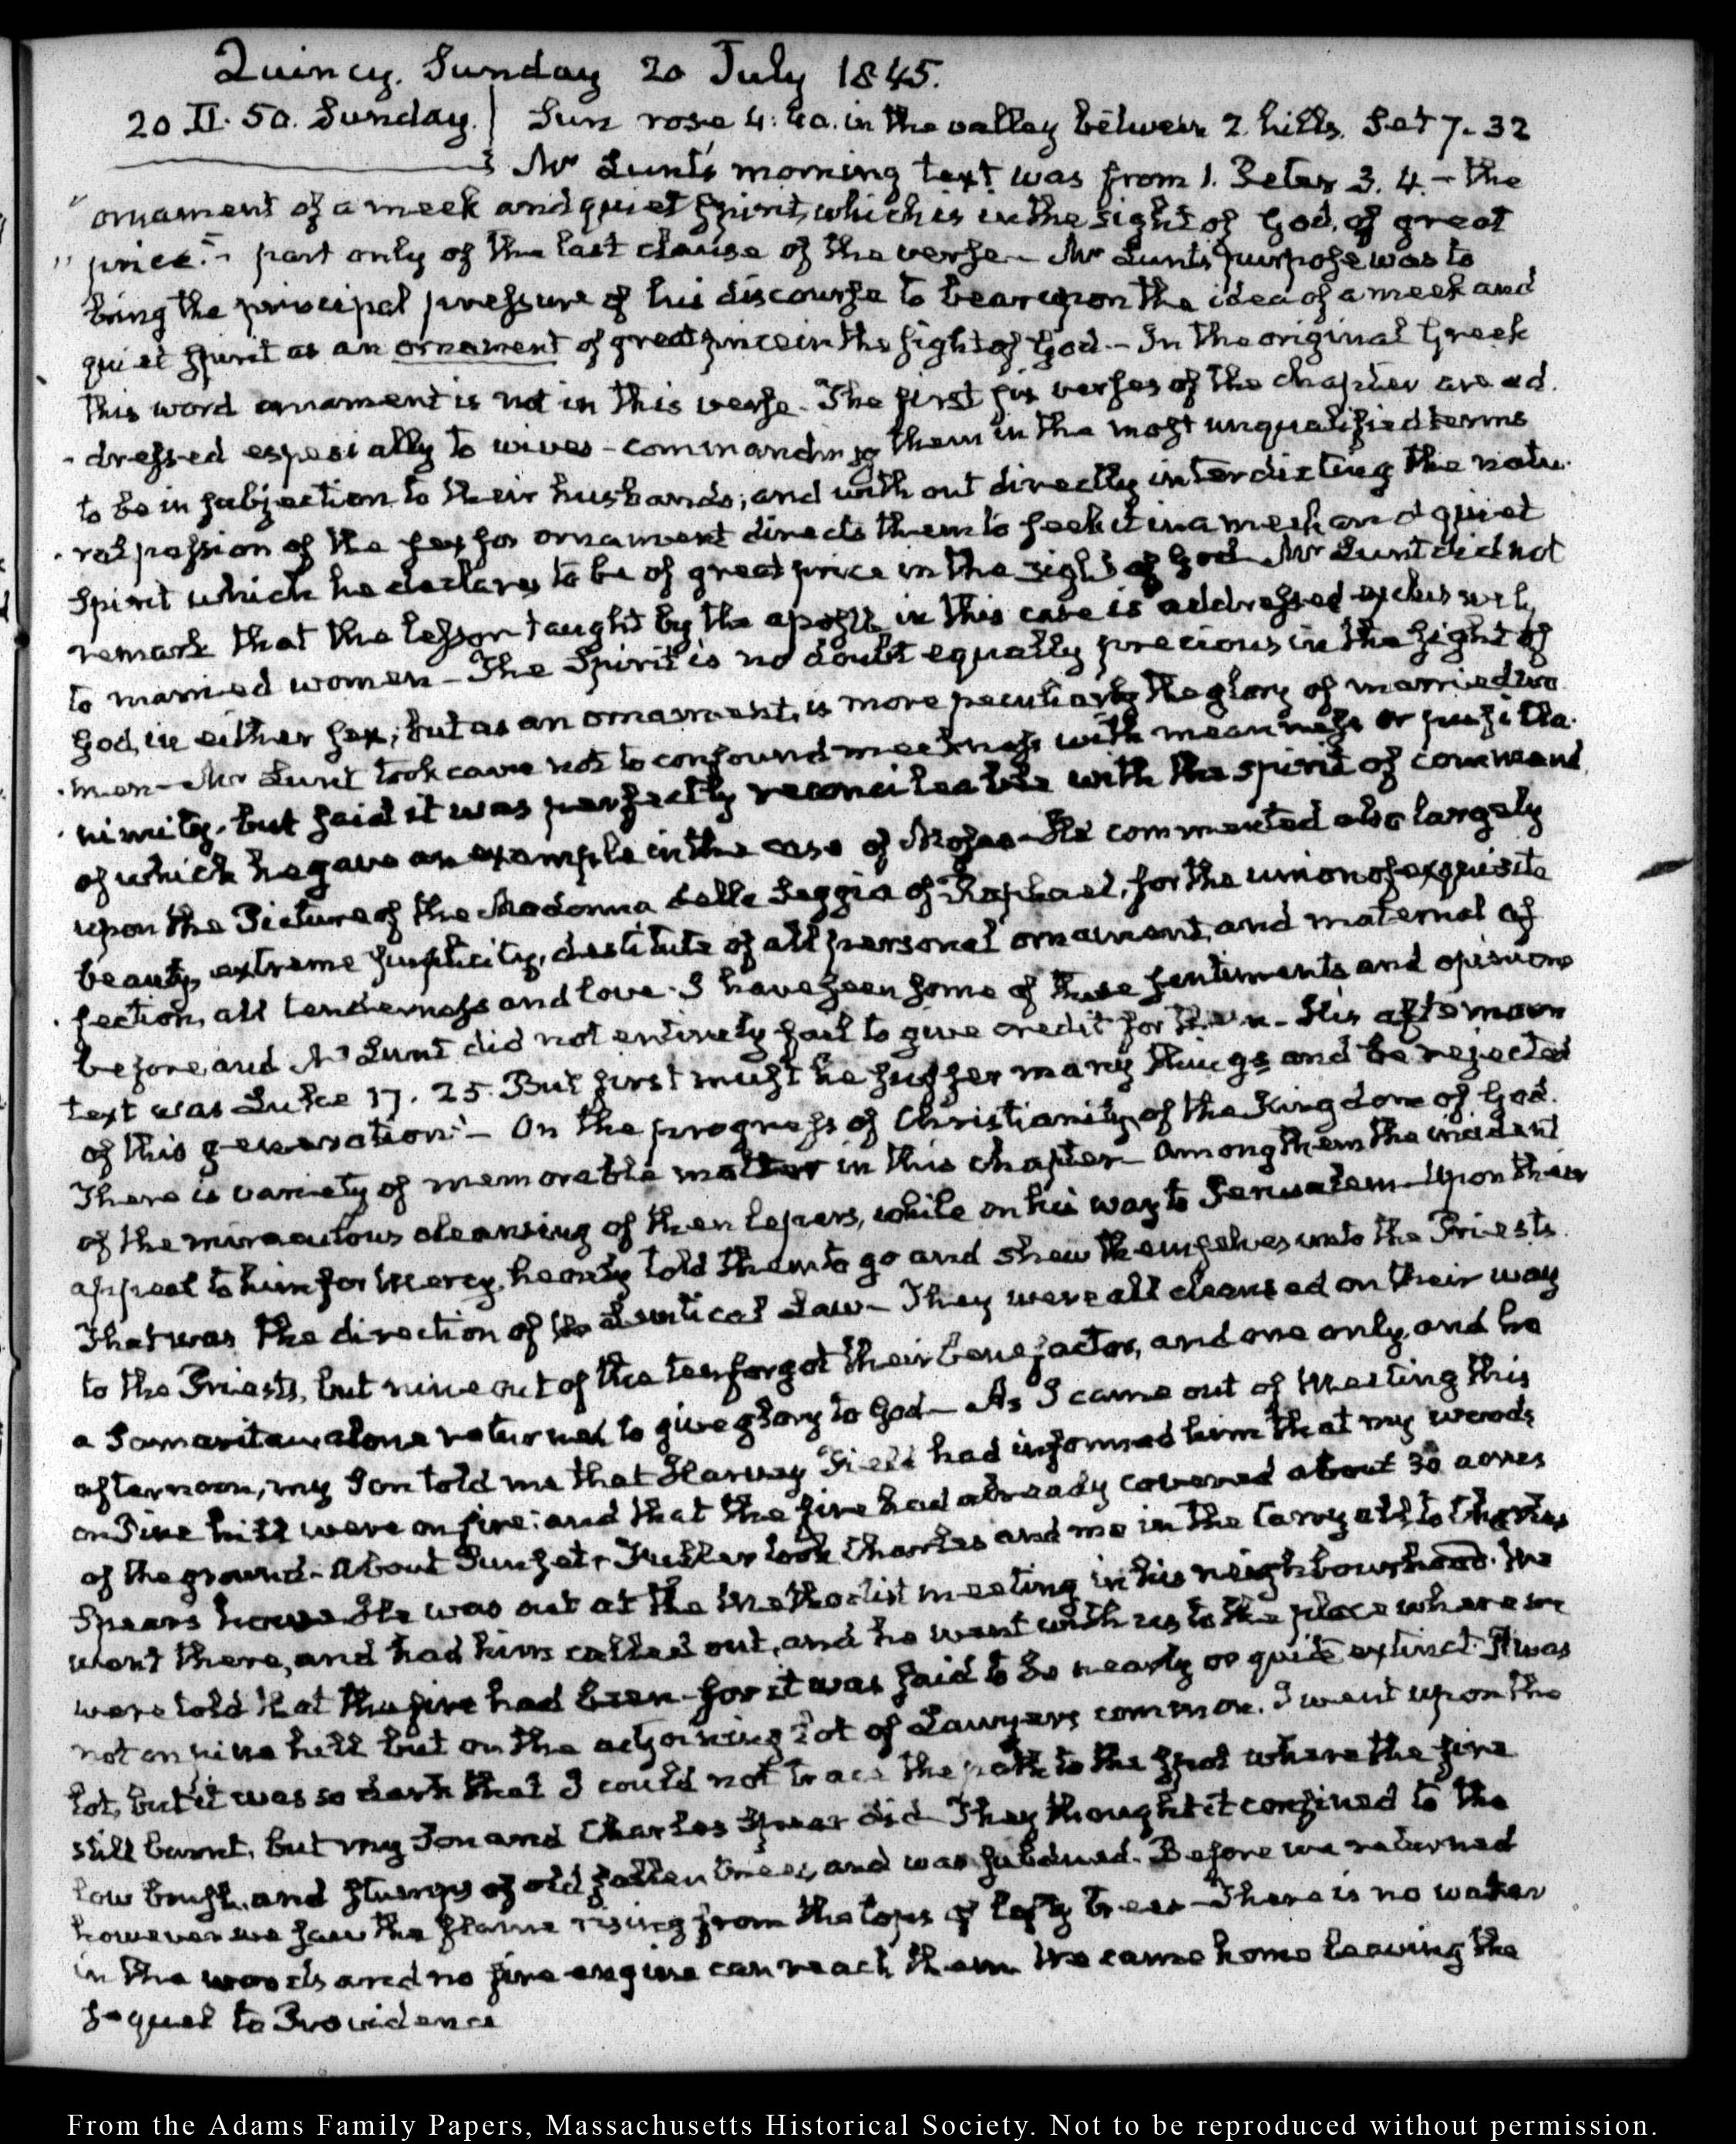 Quincy. Sunday 20 July 1845.
20 II. 50. Sunday. Sun rose 4:40. in the valley between 2 hills. Set 7-32
Mr Lunt's morning text was from 1. Peter 3. 4. - the
"ornament of a meek and quiet spirit, which is in the sight of God, of great
"price." - part only of the last clause of the verse - Mr Lunt's purpose was to
bring the principal pressure of his discourse to bear upon the idea of a meek and
quiet spirit as an ornament of great price in the sight of God. - In the original Greek
this word ornament is not in this verse. The first six verses of the chapter are ad.
-dressed espesially to wives - commanding them in the most unqualified terms
to be in subjection to their husbands; and without directly interdicting the natu.
-ral passion of the sex for ornament directs them to seek it in a meek and quiet
Spirit which he declares to be of great price in the sight of God. Mr Lunt did not
remark that the lesson taught by the apostle in this case is addressed exclusively
to married women - The Spirit is no doubt equally precious in the sight of
God, in either sex; but as an ornament, is more peculiarly the glory of married wo
-men - Mr Lunt took care not to confound meekness with meanness or pusilla-
-nimity, but said it was perfectly reconcileable with the spirit of command,
of which he gave an example in the case of Moses - He commented also largely
upon the Picture of the Madonna della Seggia of Raphael, for the union of exquisite
beauty, extreme simplicity, destitute of all personal ornament, and maternal af
-fection, all tenderness and love. I have seen some of these sentiments and opinions
before, and Mr Lunt did not entirely fail to give credit for them - His afternoon
text was Luke 17. 25. But first must he suffer many things and be rejected
of this generation" - On the progress of Christianity, of the Kingdom of God.
There is variety of memorable matter in this chapter - Among them the incident
of the miraculous cleansing of the ten lepers, while on his way to Jerusalem - Upon their
appeal to him for Mercy, he only told them to go and shew themselves unto the Priests.
That was the direction of the Levitical Law - They were all cleansed on their way
to the Priests, but nine out of the ten forgot their benefactor, and one only, and he
a Samaritan alone returned to give glory to God - As I came out of Meeting this
afternoon, my Son told me that Harvey Field had informed him that my woods
on Pine hill were on fire: and that the fire had already covered about 30 acres
of the ground. About Sunset, took Charles and me in the Carryall, to Charles
Spears house He was out at the Methodist meeting in his neighbourhood. We
went there, and had him called out, and he went with us to the place where we
were told that the fire had been - for it was said to be nearly or quite extinct. It was
not on pine hill but on the adjoining Lot of Lawyers common. I went upon the
lot, but it was so dark that I could not trace the path to the spot where the fire
still burnt, but my Son and Charles Spear did They thought it confined to the
low brush, and stumps of old fallen trees, and was subdued. Before we returned
however we saw the flame rising from the tops of lofty trees - There is no water
in the woods and no fire engine can reach them We came home leaving the
sequel to Providence
From the Adams Family Papers, Massachusetts Historical Society. Not to be reproduced without permission.